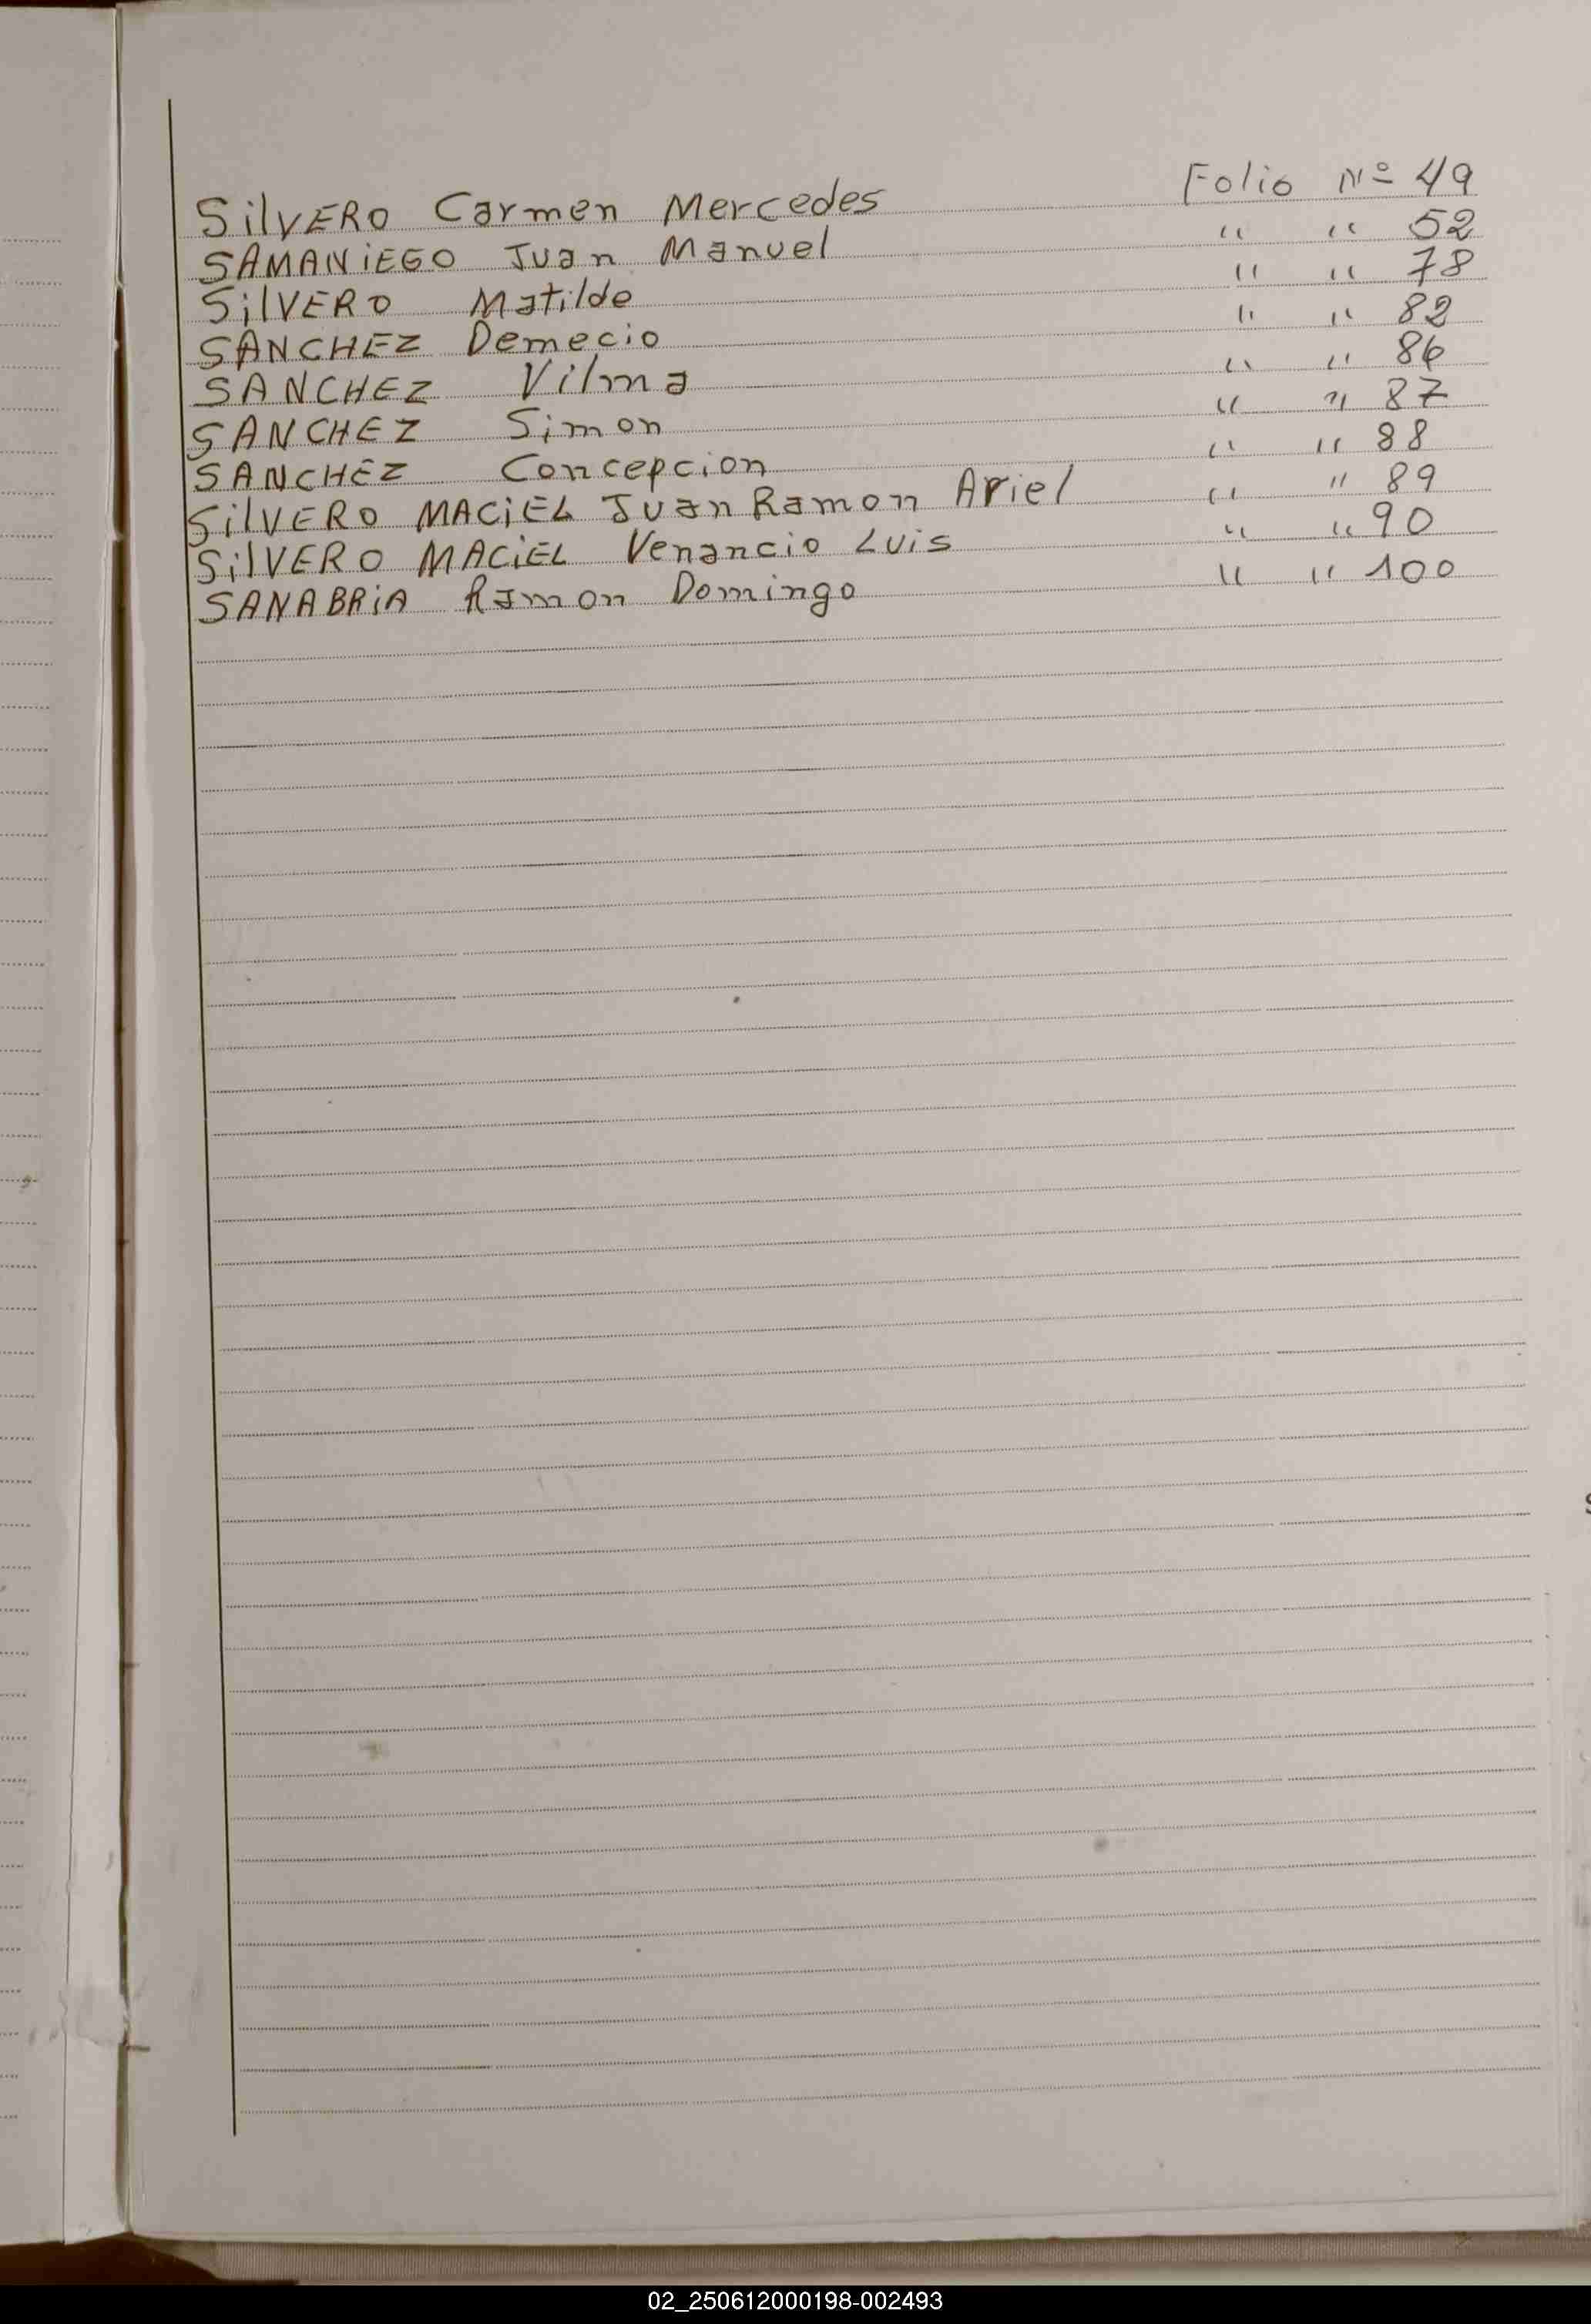 SilVERO Carmen Mercedes Folio Nº 49
SAMANiEGO Juan Manuel " " 52
SilVERO Matilde " " 78
SANCHEZ Demecio " " 82
SANCHEZ Vilma " " 86
SANCHEZ Simon " " 87
SANCHEZ Concepcion " " 88
SilVERO MACiEL Juan Ramon Ariel " " 89
SilVERO MACiEL Venancio Luis " " 90
SANABRiA Ramon Domingo " " 100
02_250612000198-002493